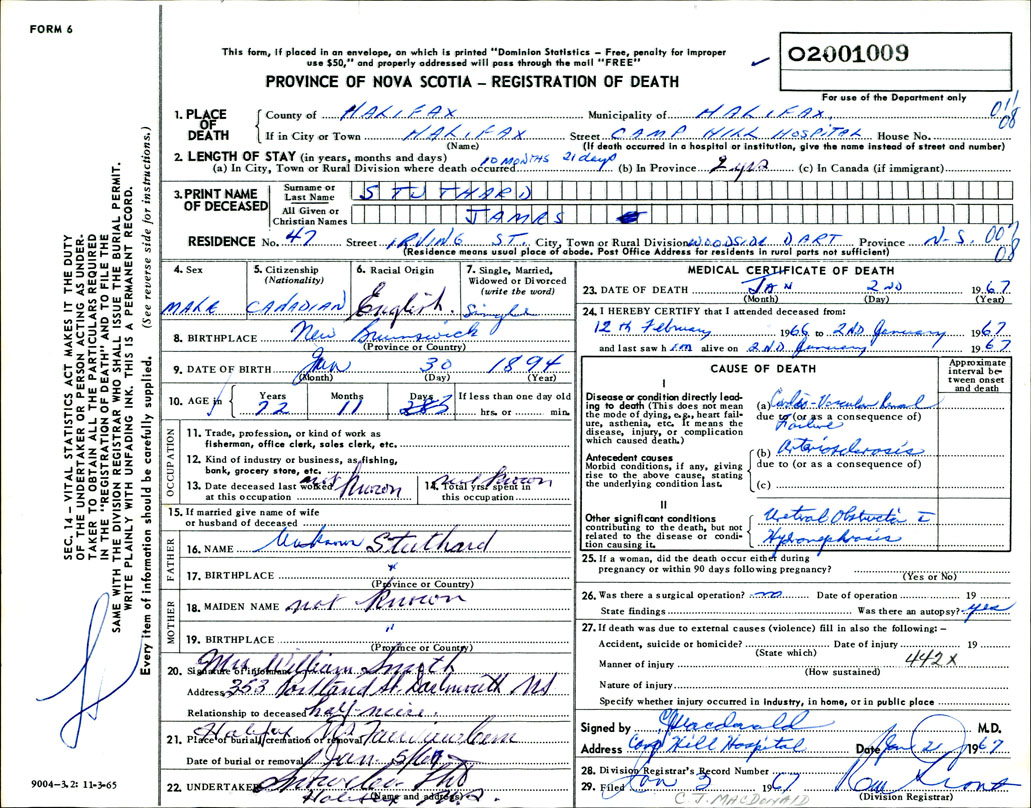 FORM 6
This form, if placed in an envelope, on which is printed "Dominion Statistics – Free, penalty for improper
use $50," and properly addressed will pass through the mail "FREE"
02001009
For use of the Department only
PROVINCE OF NOVA SCOTIA – REGISTRATION OF DEATH
1. PLACE OF DEATH
County of HALIFAX Municipality of HALIFAX. 011
If in City or Town HALIFAX Street CAMP HILL HOSPITAL House No. 08
(Name) (If death occurred in a hospital or institution, give the name instead of street and number)
2. LENGTH OF STAY (in years, months and days)
(a) In City, Town or Rural Division where death occurred 10 MONTHS 21 days (b) In Province 2 yrs (c) In Canada (if immigrant)
3. PRINT NAME OF DECEASED
Surname or Last Name STUTHARD
All Given or Christian Names JAMES
RESIDENCE No. 47 Street IRVING ST. City, Town or Rural Division WOODSIDE DART Province N-S. 007
(Residence means usual place of abode. Post Office Address for residents in rural parts not sufficient) 08
SEC. 14 – VITAL STATISTICS ACT MAKES IT THE DUTY
OF THE UNDERTAKER OR PERSON ACTING AS UNDER-
TAKER TO OBTAIN ALL THE PARTICULARS REQUIRED
IN THE "REGISTRATION OF DEATH" AND TO FILE THE
SAME WITH THE DIVISION REGISTRAR WHO SHALL ISSUE THE BURIAL PERMIT.
WRITE PLAINLY WITH UNFADING INK. THIS IS A PERMANENT RECORD.
Every item of information should be carefully supplied. (See reverse side for instructions.)
4. Sex
MALE
5. Citizenship
(Nationality)
CANADIAN
6. Racial Origin
English.
7. Single, Married,
Widowed or Divorced
(write the word)
Single
8. BIRTHPLACE New Brunswick
(Province or Country)
9. DATE OF BIRTH Jan 30 1894
(Month) (Day) (Year)
10. AGE in Years 72 Months 11 Days If less than one day old
hrs. or min.
OCCUPATION
11. Trade, profession, or kind of work as
fisherman, office clerk, sales clerk, etc.
12. Kind of industry or business, as fishing,
bank, grocery store, etc.
13. Date deceased last worked at this occupation not known
14. Total yrs. spent in this occupation not known
15. If married give name of wife
or husband of deceased
FATHER
16. NAME Unknown Stuthard
17. BIRTHPLACE "
(Province or Country)
MOTHER
18. MAIDEN NAME not known
19. BIRTHPLACE "
(Province or Country)
20. Signature of informant Mrs William Smith
Address 353 Portland St. Dartmouth NS
Relationship to deceased half-niece.
21. Place of burial, cremation or removal Halifax NS Fairview Lawn
Date of burial or removal Jan 5/67
22. UNDERTAKER
(Name and address)
9004–3.2: 11-3-65
MEDICAL CERTIFICATE OF DEATH
23. DATE OF DEATH JAN 2ND 1967
(Month) (Day) (Year)
24. I HEREBY CERTIFY that I attended deceased from:
12th February 1966 to 2ND January 1967
and last saw him alive on 2ND January 1967
CAUSE OF DEATH
Approximate
interval be-
tween onset
and death
I
Disease or condition directly lead-
ing to death (This does not mean
the mode of dying, e.g., heart fail-
ure, asthenia, etc. It means the
disease, injury, or complication
which caused death.)
(a) Cardio-Vascular Renal
due to (or as a consequence of)
Failure
Antecedent causes
Morbid conditions, if any, giving
rise to the above cause, stating
the underlying condition last.
(b) Arteriosclerosis
due to (or as a consequence of)
(c)
II
Other significant conditions
contributing to the death, but not
related to the disease or condi-
tion causing it.
Ureteral Obstruction
Hydronephrosis
25. If a woman, did the death occur either during
pregnancy or within 90 days following pregnancy?
(Yes or No)
26. Was there a surgical operation? no Date of operation 19
State findings Was there an autopsy? yes
27. If death was due to external causes (violence) fill in also the following: –
Accident, suicide or homicide? Date of injury 19
(State which) 442X
Manner of injury
(How sustained)
Nature of injury
Specify whether injury occurred in industry, in home, or in public place
Signed by CJ Macdonald M.D.
Address Camp Hill Hospital Date Jan 2 1967
28. Division Registrar's Record Number
29. Filed Jan 3 1967
(Division Registrar)
C. J. MACDONALD